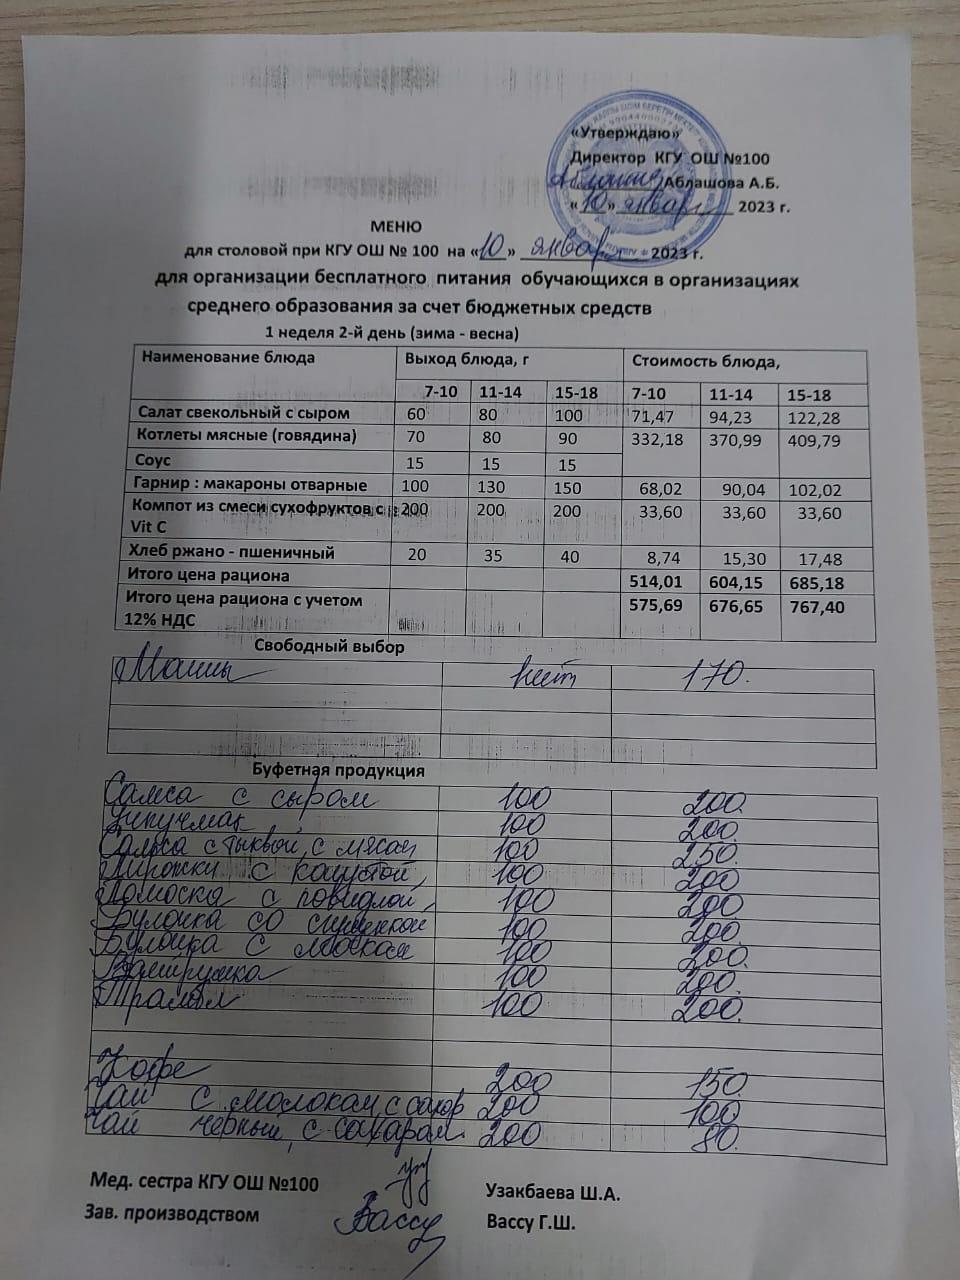 «Утверждаю»
Директор КГУ ОШ №100
Аблашова А.Б.
«10» января 2023 г.
МЕНЮ
для столовой при КГУ ОШ № 100 на «10» января 2023 г.
для организации бесплатного питания обучающихся в организациях
среднего образования за счет бюджетных средств
1 неделя 2-й день (зима - весна)
Наименование блюда Выход блюда, г Стоимость блюда,
7-10 11-14 15-18 7-10 11-14 15-18
Салат свекольный с сыром 60 80 100 71,47 94,23 122,28
Котлеты мясные (говядина) 70 80 90 332,18 370,99 409,79
Соус 15 15 15
Гарнир : макароны отварные 100 130 150 68,02 90,04 102,02
Компот из смеси сухофруктов с 200 200 200 33,60 33,60 33,60
Vit C
Хлеб ржано - пшеничный 20 35 40 8,74 15,30 17,48
Итого цена рациона 514,01 604,15 685,18
Итого цена рациона с учетом 575,69 676,65 767,40
12% НДС
Свободный выбор
170.
Буфетная продукция
Самса с сыром 100 200.
Учпучмак 100 200.
Самса с тыквой, с мясом 100 250.
Пирожки с капустой, 100 200
с повидлой, 100 200
Булочка со сгущенкой 100 200.
Булочка с маком 100 200.
Ватрушка 100 200.
100 200.
Кофе 200 150.
Чай с молоком, с сахар 200 100
Чай черный, с сахаром. 200 80.
Мед. сестра КГУ ОШ №100 Узакбаева Ш.А.
Зав. производством Вассу Вассу Г.Ш.